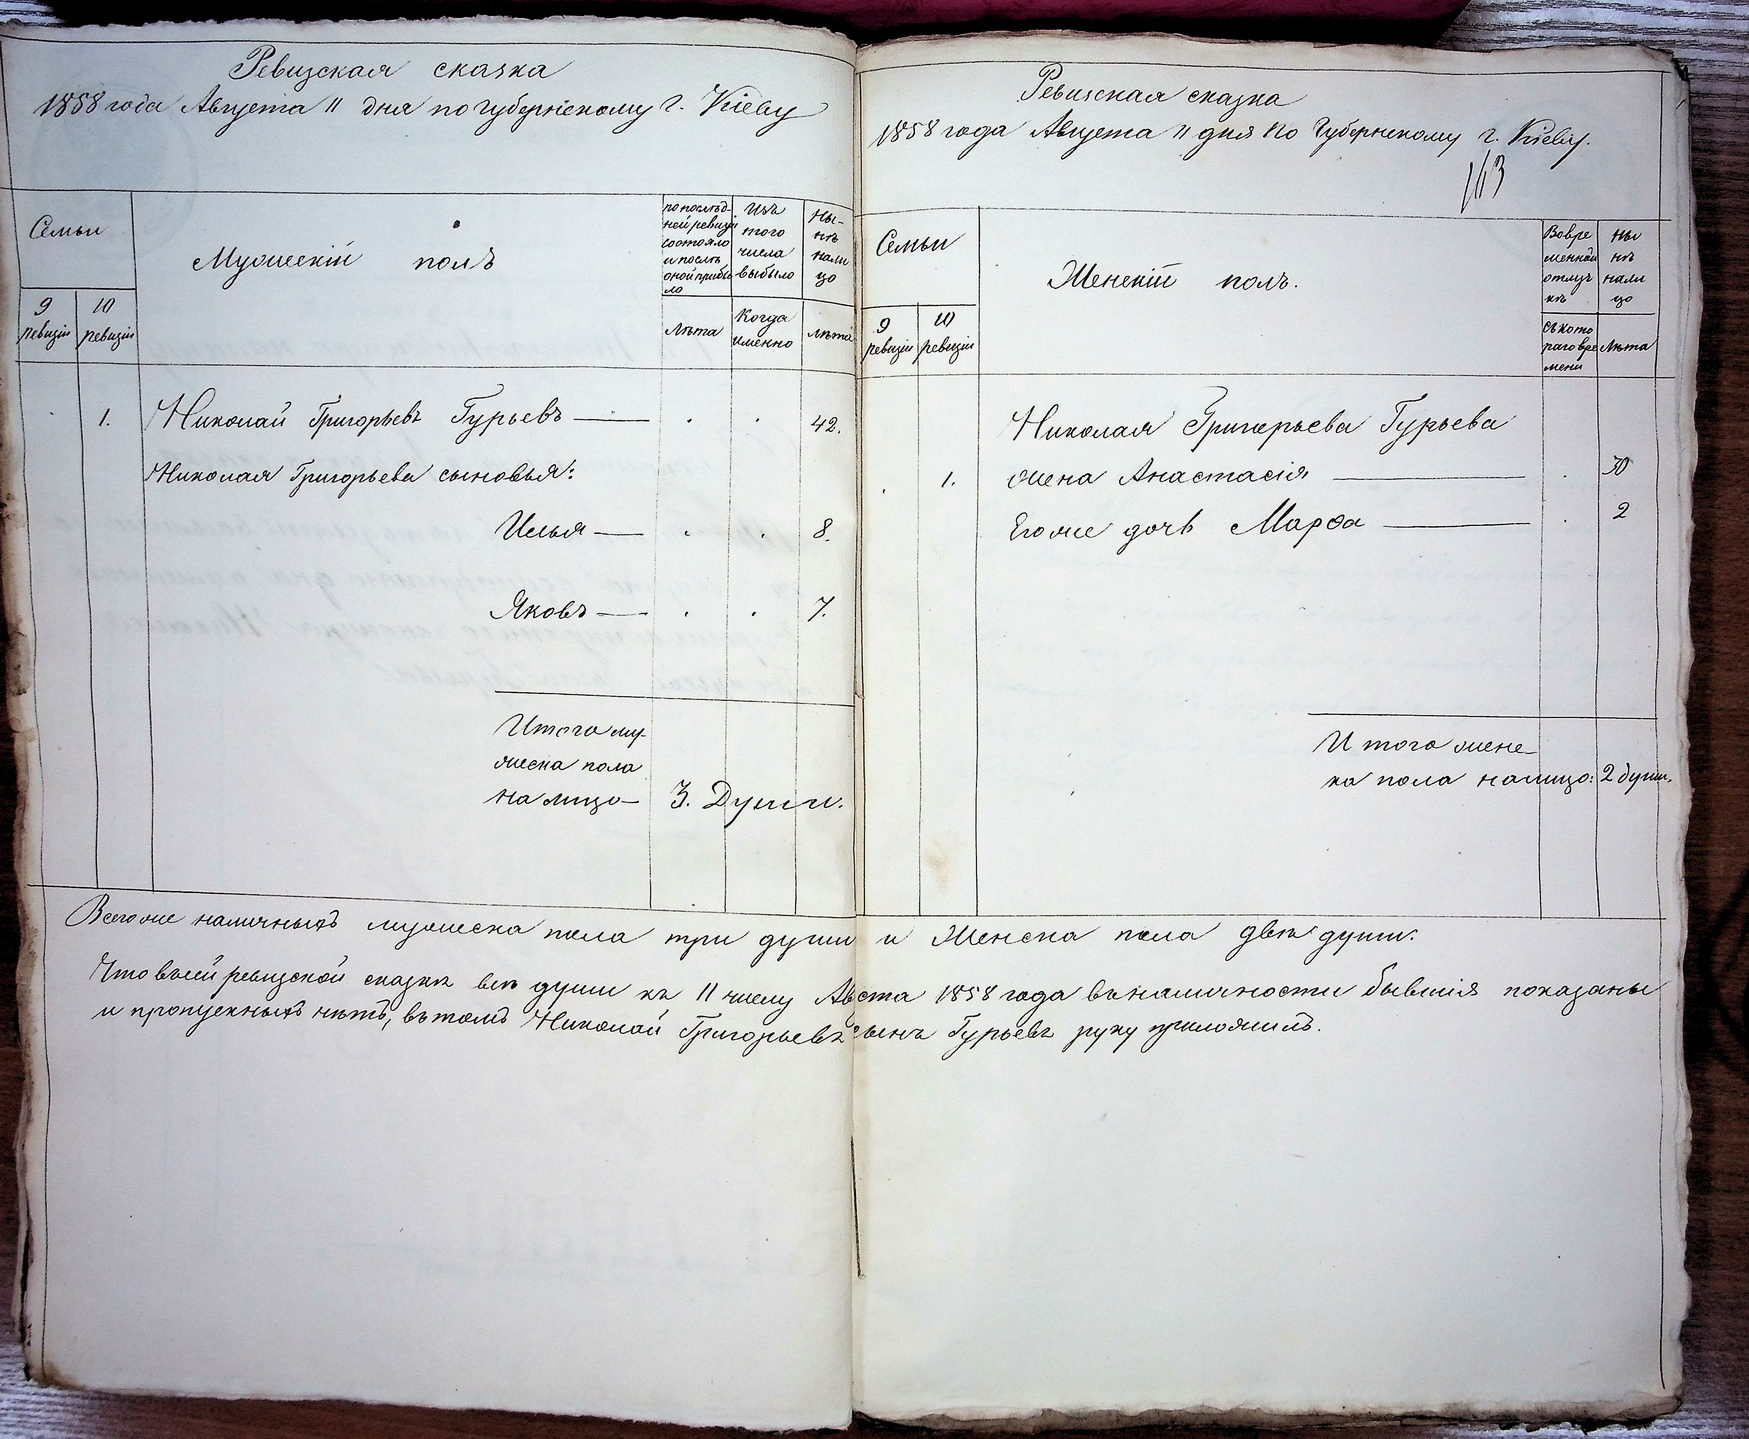 Ревизская сказка
1858 года Августа 11 дня по губернскому г. Кіеву
Семьи
9 ревизіи
10 ревизіи
Мужескій полъ
по послѣд-
ней ревизіи
состояло
и послѣ
оной прибы
ло
Лѣта
Изъ
того
числа
выбыло
Когда
именно
Ны-
нѣ
нали
цо
лѣта
1. Николай Григорьевъ Гурьевъ — 42.
Николая Григорьева сыновья:
Илья — 8.
Яковъ — 7.
Итого му-
жеска пола
на лицо — 3. Души.
Ревизская сказка
1858 года Августа 11 дня по Губернскому г. Кіеву.
163
Семьи
9 ревизіи
10 ревизіи
Женскій полъ.
Вовре
менной
отлуч
кѣ
съ кото
раго вре
мени
Ны
нѣ
нали
цо
Лѣта
Николая Григорьева Гурьева
1. жена Анастасія — 30
Его же дочь Марѳа — 2
Итого женс
ка пола налицо: 2 души.
Всего же наличныхъ мужеска пола три души и Женска пола двѣ души.
Что в сей ревизской сказкѣ всѣ души къ 11 числу Авгста 1858 года въ наличности бывшія показаны
и пропускныхъ нѣтъ, въ томъ Николай Григорьевъ сынъ Гурьевъ руку приложилъ.